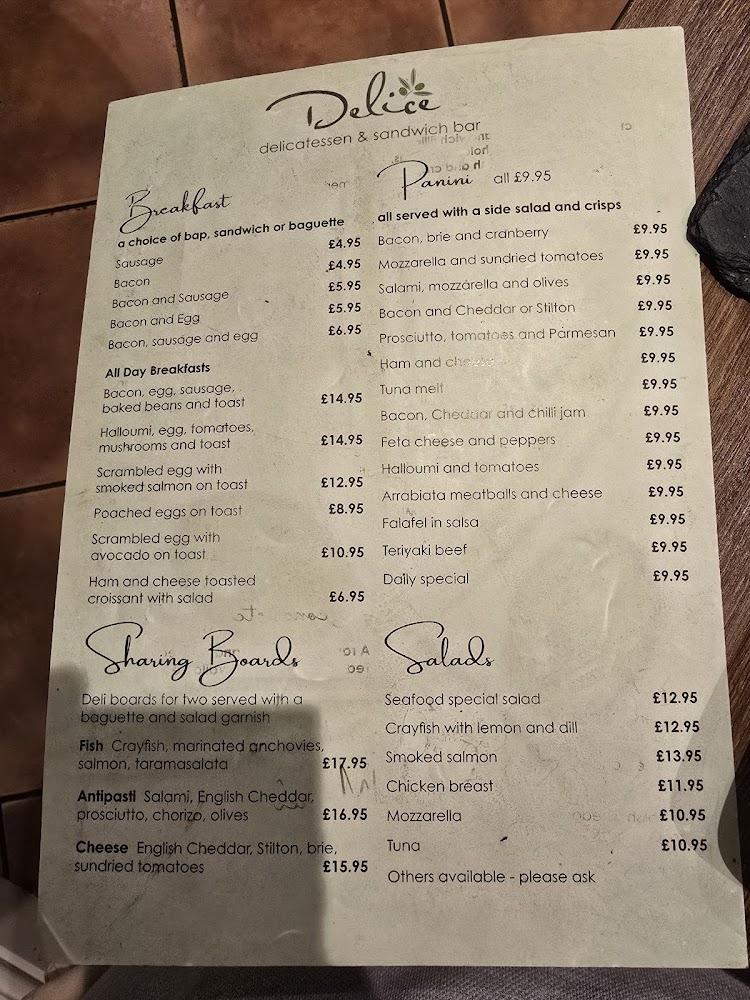 Delice
delicatessen & sandwich bar
Breakfast
a choice of bap, sandwich or baguette
Sausage £4.95
Bacon £4.95
Bacon and Sausage £5.95
Bacon and Egg £5.95
Bacon, sausage and egg £6.95
All Day Breakfasts
Bacon, egg, sausage,
baked beans and toast £14.95
Halloumi, egg, tomatoes,
mushrooms and toast £14.95
Scrambled egg with
smoked salmon on toast £12.95
Poached eggs on toast £8.95
Scrambled egg with
avocado on toast £10.95
Ham and cheese toasted
croissant with salad £6.95
Sharing Boards
Deli boards for two served with a
baguette and salad garnish
Fish Crayfish, marinated anchovies,
salmon, taramasalata £17.95
Antipasti Salami, English Cheddar,
prosciutto, chorizo, olives £16.95
Cheese English Cheddar, Stilton, brie,
sundried tomatoes £15.95
Panini all £9.95
all served with a side salad and crisps
Bacon, brie and cranberry £9.95
Mozzarella and sundried tomatoes £9.95
Salami, mozzarella and olives £9.95
Bacon and Cheddar or Stilton £9.95
Prosciutto, tomatoes and Parmesan £9.95
Ham and cheese £9.95
Tuna melt £9.95
Bacon, Cheddar and chilli jam £9.95
Feta cheese and peppers £9.95
Halloumi and tomatoes £9.95
Arrabiata meatballs and cheese £9.95
Falafel in salsa £9.95
Teriyaki beef £9.95
Daily special £9.95
Salads
Seafood special salad £12.95
Crayfish with lemon and dill £12.95
Smoked salmon £13.95
Chicken breast £11.95
Mozzarella £10.95
Tuna £10.95
Others available - please ask